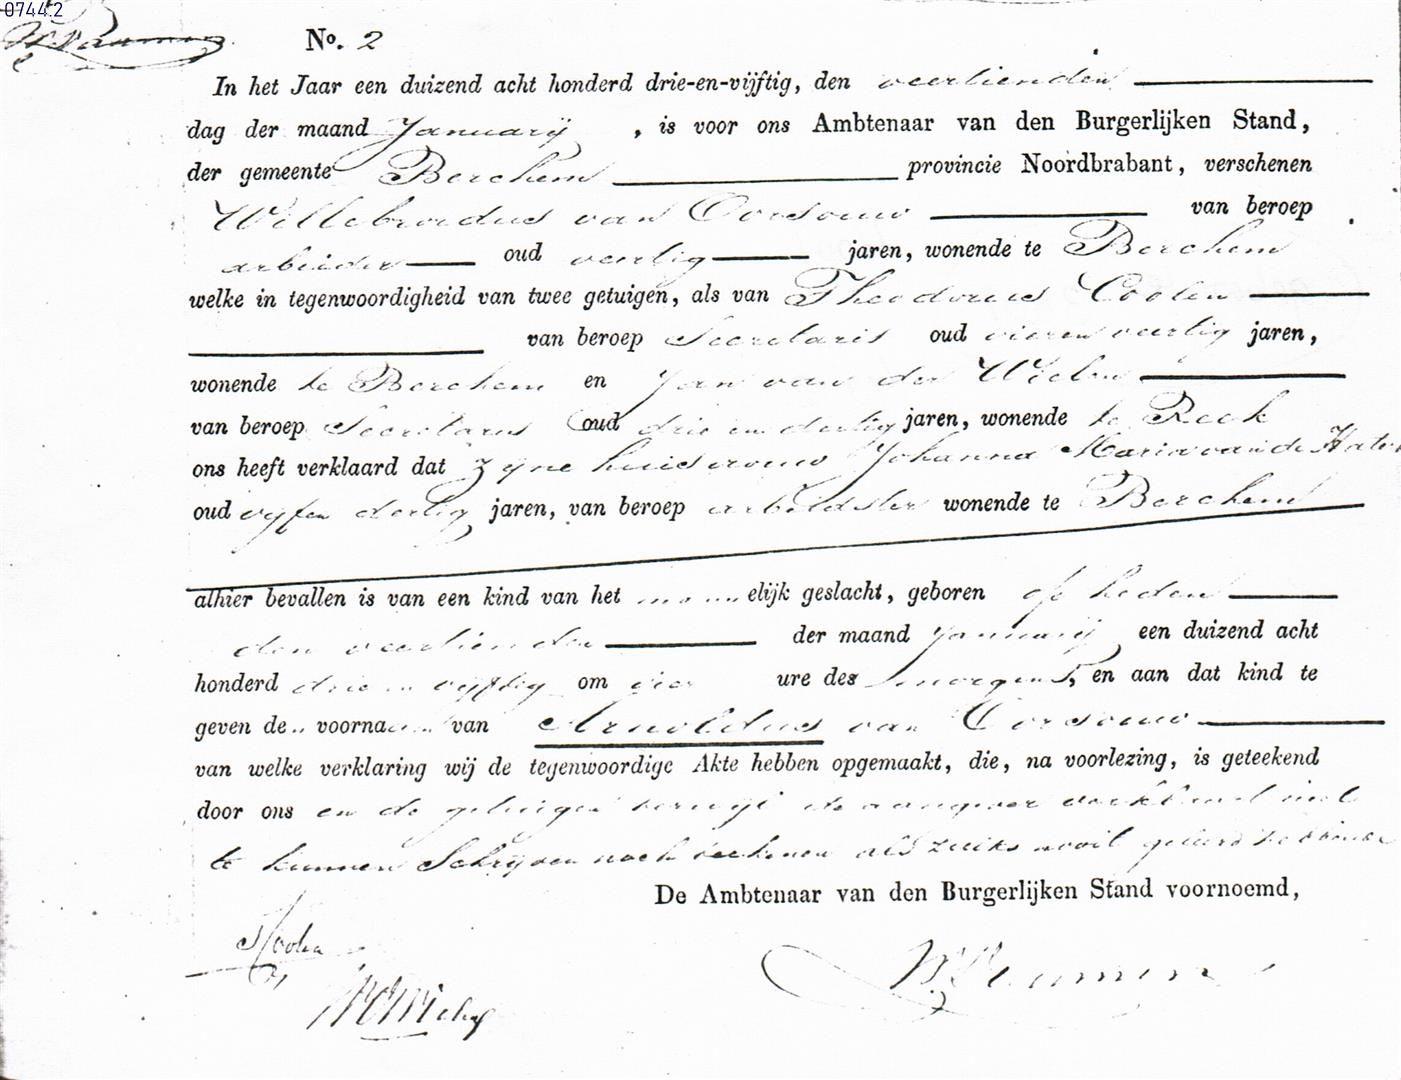 0744.2
No. 2
In het Jaar een duizend acht honderd drie-en-vijftig, den veertienden
dag der maand Januarij, is voor ons Ambtenaar van den Burgerlijken Stand,
der gemeente Berchem provincie Noordbrabant, verschenen
Willebrordus van Corsouw van beroep
arbeider oud veertig jaren, wonende te Berchem
welke in tegenwoordigheid van twee getuigen, als van Theodorus Coolen
van beroep Secretaris oud vierenveertig jaren,
wonende te Berchem en Jan van der Wielen
van beroep Secretaris oud drie en dertig jaren, wonende te Reek
ons heeft verklaard dat zijne huisvrouw Johanna Maria van de
oud vijfen dertig jaren, van beroep arbeidster wonende te Berchem
alhier bevallen is van een kind van het mannelijk geslacht, geboren op heden
den veertienden der maand Januarij een duizend acht
honderd drie en vijftig om vier ure des morgens, en aan dat kind te
geven de voornaam van Arnoldus van Corsouw
van welke verklaring wij de tegenwoordige Akte hebben opgemaakt, die, na voorlezing, is geteekend
door ons en de getuigen terwijl de aangever verklaard niet
te kunnen Schrijven noch teekenen als zulks nooit geleerd te
De Ambtenaar van den Burgerlijken Stand voornoemd,
Coolen